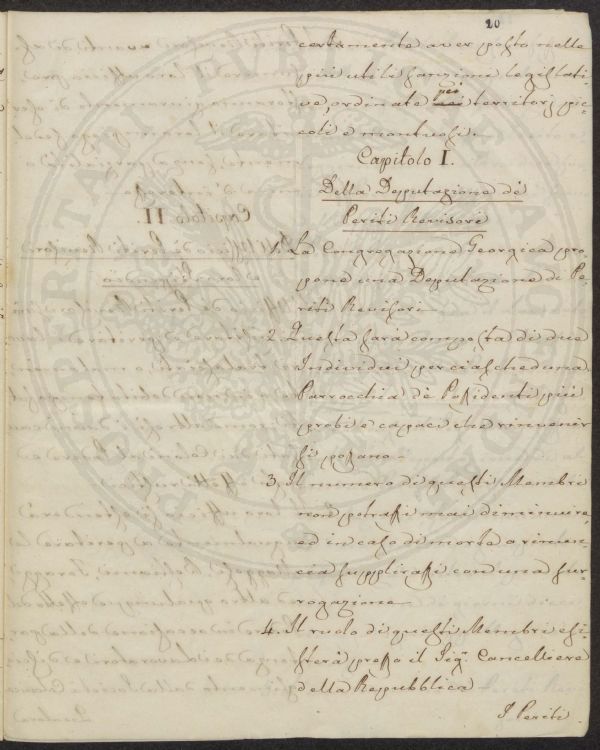 20
certamente aver posto nelle
più utile sanzione legislati-
va, ordinate pei territorj pic-
coli e montuosi.
Capitolo I.
Della Deputazione de
Periti Revisori
1. La Congregazione Georgica pro-
pone una Deputazione di Pe-
riti Revisori
2. Questa sarà composta di due
Individui per ciascheduna
Parrocchia de Possidenti più
probi e capaci che rinvenir
si possano
3. Il numero di questi Membri
non potrassi mai diminuire,
ed in caso di morte o rinun-
cia supplirassi con una sur-
rogazione
4. Il ruolo di questi Membri esi-
sterà presso il Sig.r Cancelliere
della Repubblica
I Periti